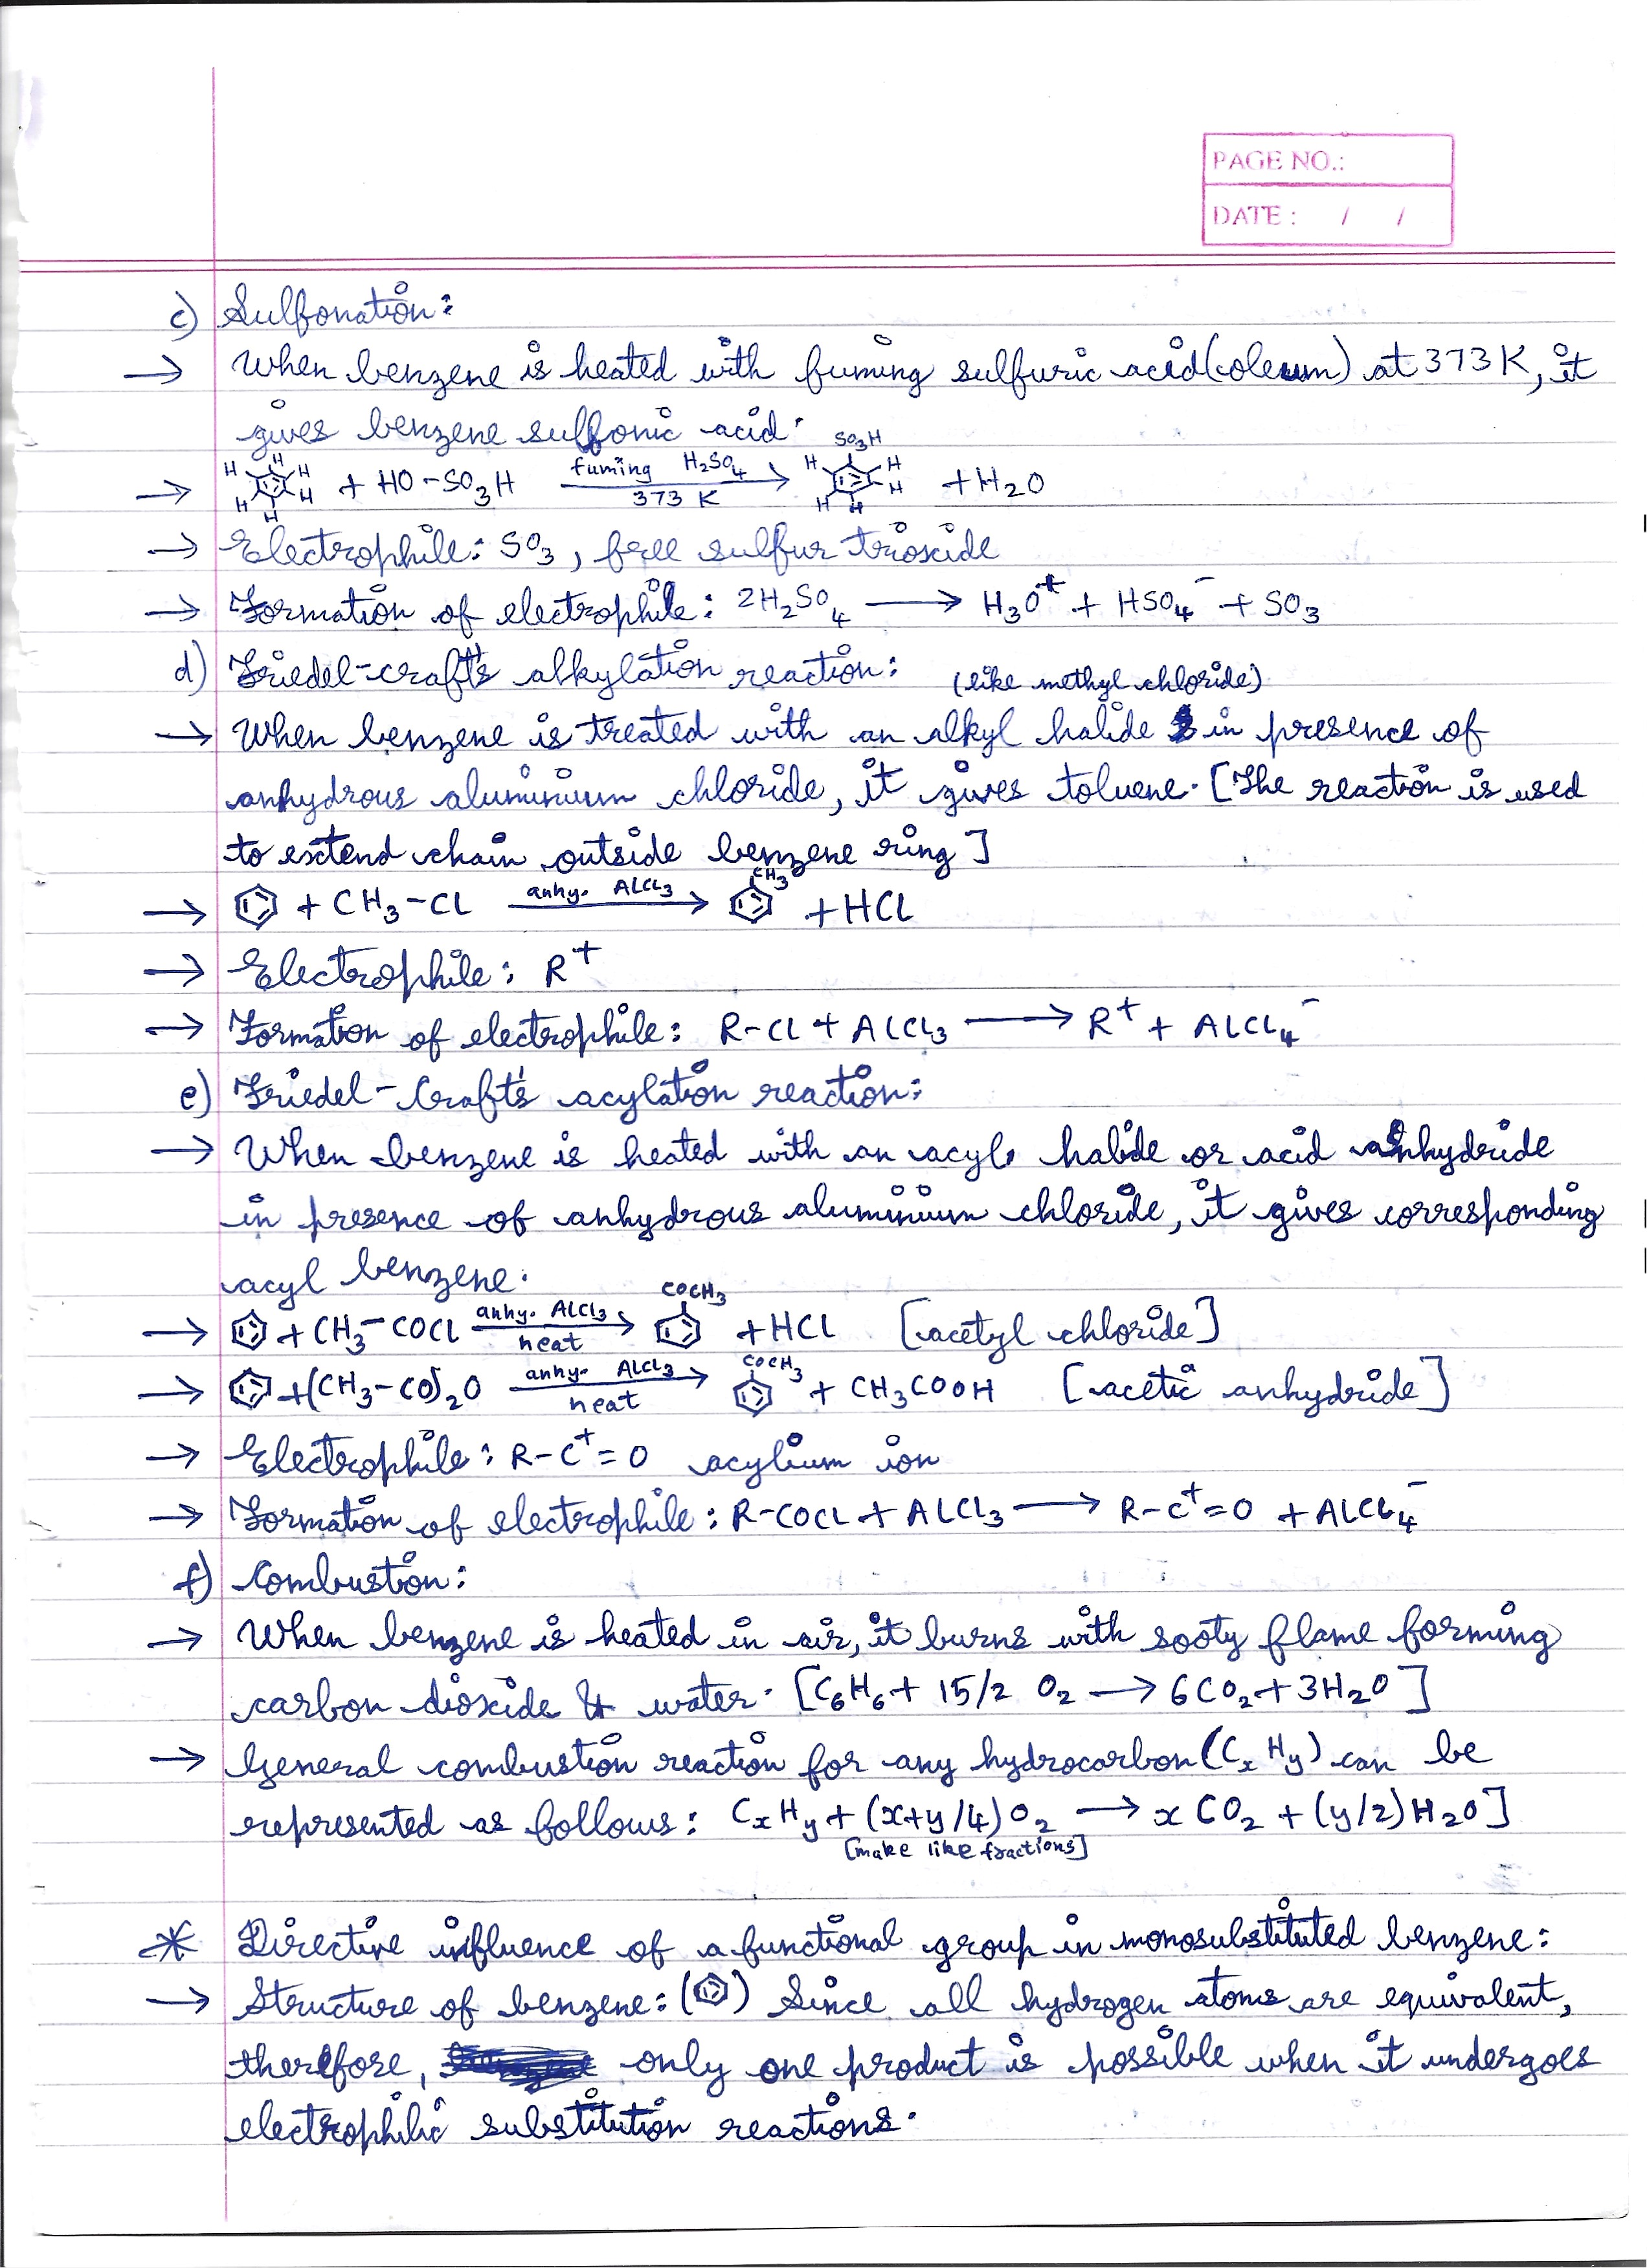 PAGE NO.:
DATE : / /
c) Sulfonation:
→ When benzene is heated with fuming sulfuric acid (oleum) at 373 K, it
gives benzene sulfonic acid.
SO₃H
→ H H H H H H + HO-SO₃H fuming H₂SO₄ 373 K → H H H H H + H₂O
→ Electrophile: SO₃, free sulfur trioxide
→ Formation of electrophile: 2H₂SO₄ ⟶ H₃O⁺ + HSO₄⁻ + SO₃
d) Friedel-craft's alkylation reaction: (like methyl chloride)
→ When benzene is treated with an alkyl halide in presence of
anhydrous aluminium chloride, it gives toluene. [The reaction is used
to extend chain outside benzene ring]
→ + CH₃-Cl anhy. AlCl₃ → CH₃ + HCl
→ Electrophile: R⁺
→ Formation of electrophile: R-Cl + AlCl₃ ⟶ R⁺ + AlCl₄⁻
e) Friedel-Craft's acylation reaction:
→ When benzene is heated with an acyl halide or acid anhydride
in presence of anhydrous aluminium chloride, it gives corresponding
acyl benzene.
→ + CH₃-COCl anhy. AlCl₃ heat → COCH₃ + HCl [acetyl chloride]
→ + (CH₃-CO)₂O anhy. AlCl₃ heat → COCH₃ + CH₃COOH [acetic anhydride]
→ Electrophile: R-C⁺=O acylium ion
→ Formation of electrophile: R-COCl + AlCl₃ ⟶ R-C⁺=O + AlCl₄⁻
f) Combustion:
→ When benzene is heated in air, it burns with sooty flame forming
carbon dioxide & water. [C₆H₆ + 15/2 O₂ → 6CO₂ + 3H₂O]
→ General combustion reaction for any hydrocarbon (CₓHy) can be
represented as follows: CₓHy + (x+y/4)O₂ → x CO₂ + (y/2)H₂O]
[make like fractions]
* Directive influence of a functional group in monosubstituted benzene:
→ Structure of benzene: ( ) Since all hydrogen atoms are equivalent,
therefore, only one product is possible when it undergoes
electrophilic substitution reactions.